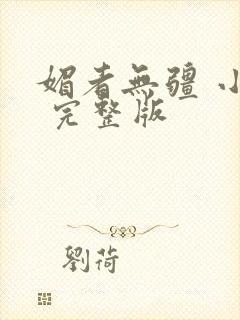 媚者無疆 小
完整版
劉荷